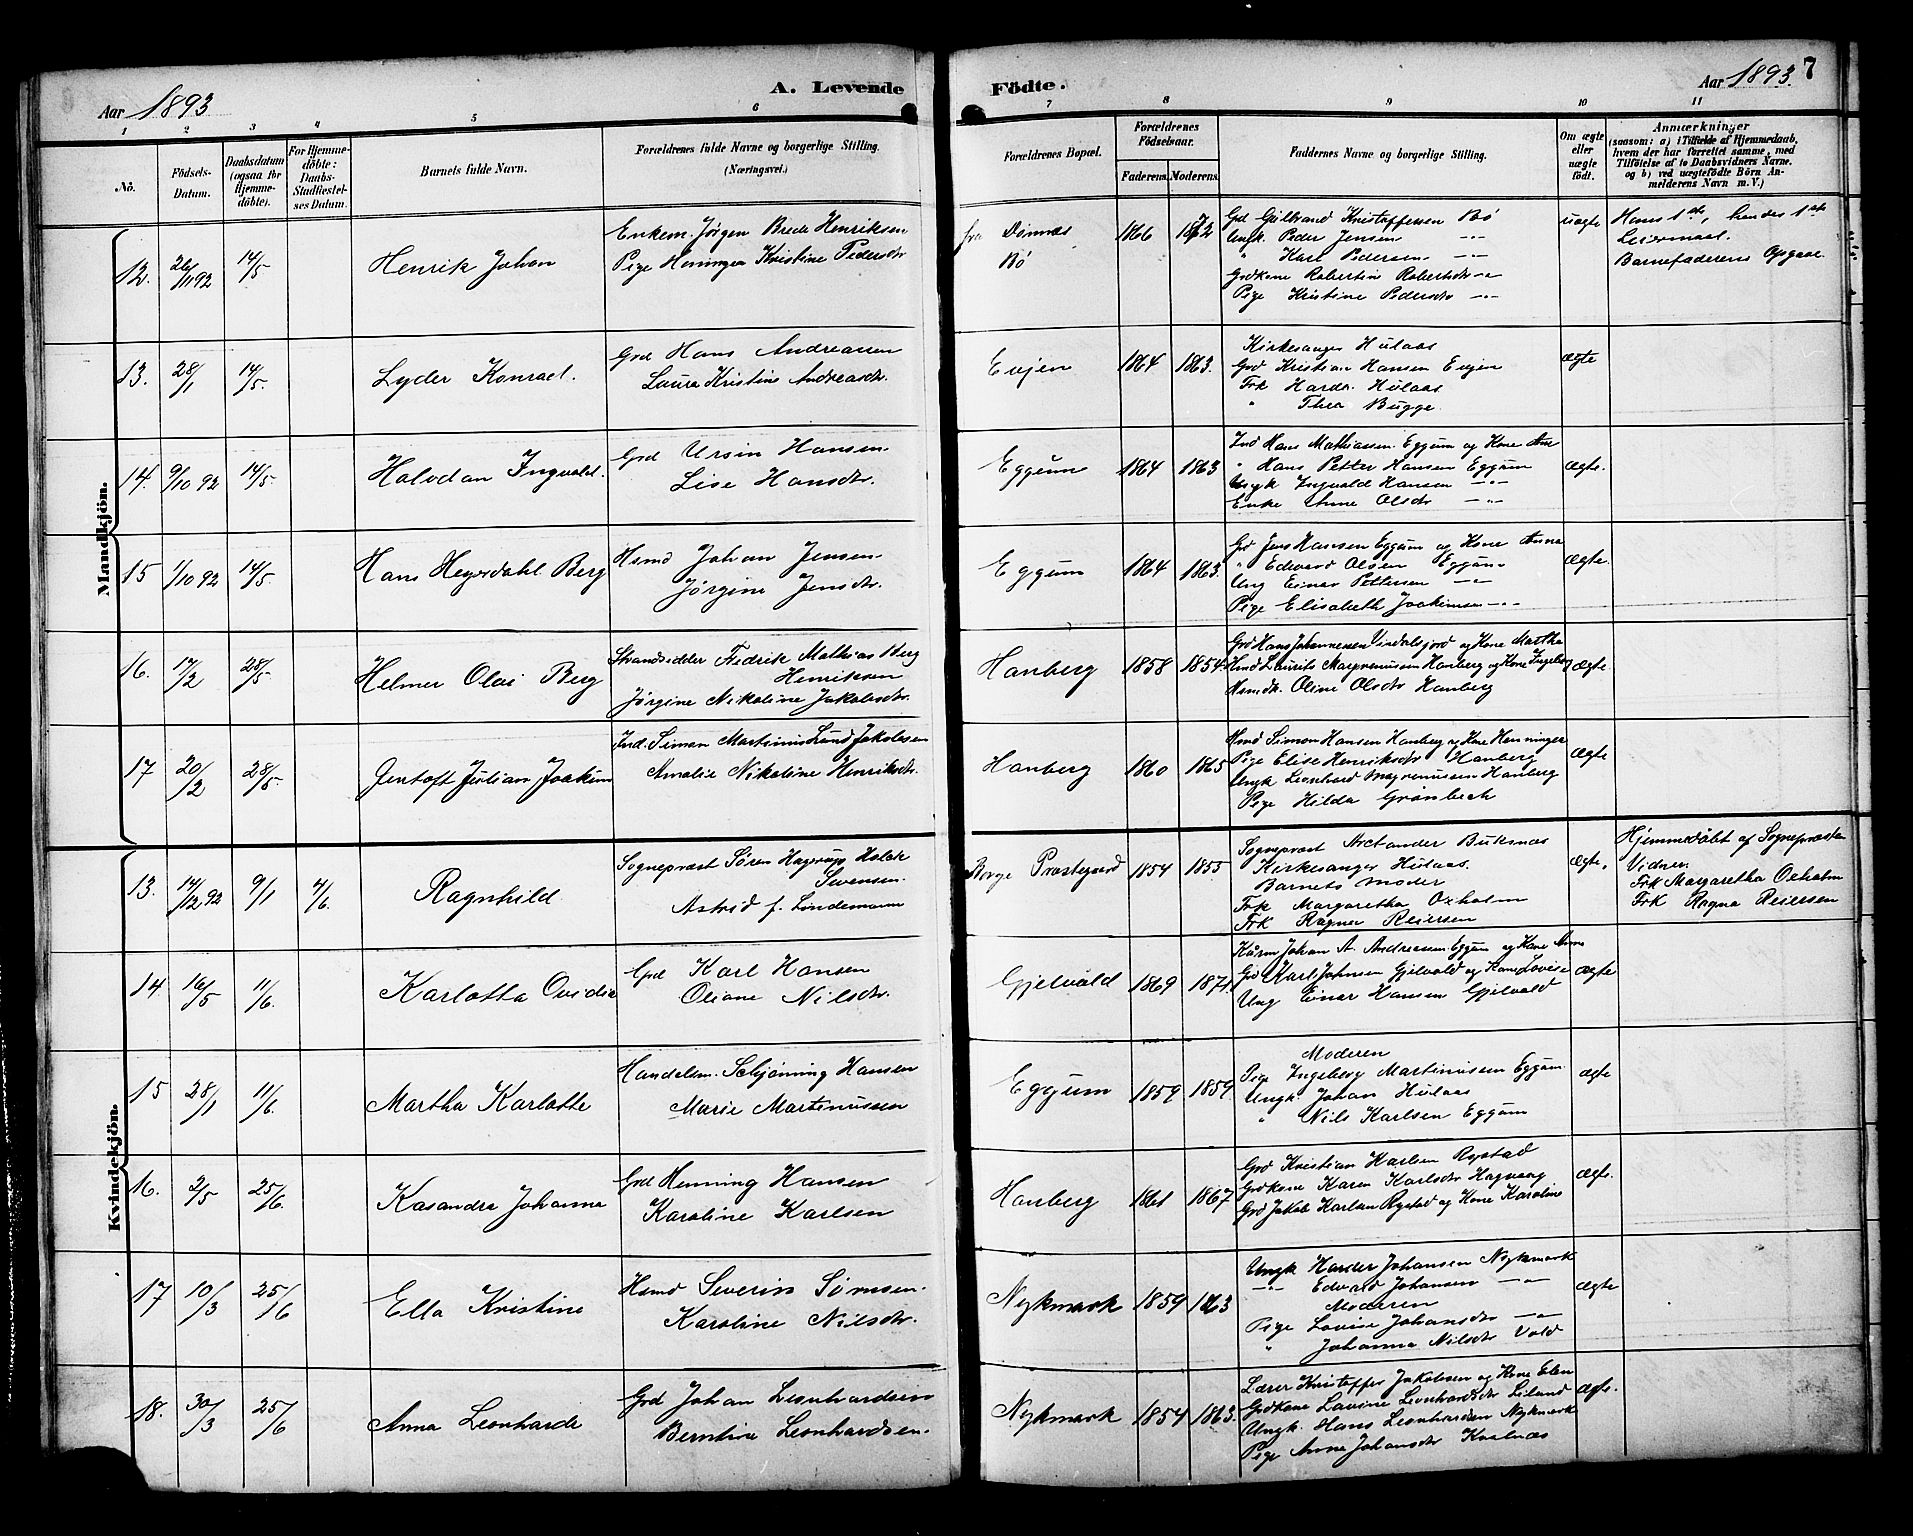 Aar 1893
A. Levende
Födte.
Aar 1893. 7
1 2 3 4 5 6 7 8 9 10 11
No.
Födsels-Datum.
Daabsdatum (ogsaa for Hjemmedöbte).
For Hjemmedöbte: Daabs-Stadfæstelses Datum.
Barnets fulde Navn.
Forældrenes fulde Navne og borgerlige Stilling. (Næringsvei.)
Forældrenes Bopæl.
Forældrenes Födselsaar.
Faderens. Moderens.
Faddernes Navne og borgerlige Stilling.
Om ægte eller uægte födt.
Anmærkninger
(saasom: a) i Tilfælde af Hjemmedaab, hvem der har forrettet samme, med Tilföielse af to Daabsvidners Navne. og b) ved uægtefödte Börn Anmelderens Navn m. V.)
Mandkjön.
12. 26/11 92 14/5 Henrik Johan
Enkem. Jørgen Brede Henriksen
Pige Henninga Kristine Pedersdtr
fra Dønnes
Bø
1866 1872
Gd Gulbrand Kristoffersen Bø
Ungk. Peder Jensen -"-
" Karl Pedersen -"-
Grdkone Robertine Robertsdtr -"-
Pige Kristine Pedersdtr -"-
uægte
Hans 1ste, hendes 1ste
Leiermaal.
Barnefaderens Opgave.
13. 28/1 14/5 Lyder Konrad.
Grd Hans Andreassen
Laura Kristine Andreasdtr.
Evjen 1864 1863.
Kirkesanger Hulaas
Grd Kristian Hansen Evjen
Frk Harda Hulaas
" Thea Bugge.
ægte
14. 9/10 92 14/5. Halvdan Ingvald.
Grd Ursin Hansen
Lise Hansdtr.
Eggum 1864 1863
Ind Hans Mathiassen Eggum og Kone Ane
" Hans Petter Hansen Eggum
Ungk Ingvald Hansen -"-
Enke Anne Olsdtr -"-
Ægte.
15 1/10 92 14/5 Hans Heyerdahl Berg
Hsmd Johan Jensen
Jørgine Jensdtr.
Eggum 1864 1863.
Gd Jens Hansen Eggum og Kone Anna
" Edvard Olsen Eggum
Ung Einar Pettersen -"-
Pige Elisabeth Joakimsen -"-
Ægte.
16. 17/2 28/5 Helmer Olai Berg
Strandsidder Fredrik Mathias Berg
Henriksen
Jørgine Nikoline Jakobsdtr.
Hanberg 1858 1854
Grd Hans Johannessen Vindalsjord og Kone Martha
Hsmd Laurits Magremussen Hanberg og Kone Ingeborg
Hsmdk. Oline Olsdtr Hanberg
Ægte
17 20/2 28/5. Jentoft Julian Joakim
Ind. Simon Martinus Lund Jakobsen
Amalie Nikoline Henriksdtr.
Hanberg 1860 1865
Hsmd Simon Hansen Hanberg og Kone Henninger
Pige Elise Henriksdtr Hanberg
Ungk Leonhard Magremussen Hanberg
Pige Hilda Grønbech
Ægte
Kvindekjön.
13. 14/12 92 9/1 4/6. Ragnhild.
Sogneprest Søren Hagerup Holck
Svensen.
Astrid f. Lindemann
Borge Prestegaard 1854 1855
Sogneprest Arctander Buksnæs
Kirkesanger Hulaas.
Barnets Moder
Frk Margaretha Oxholm
Frk Ragna Reiersen
Ægte.
Hjemmedøbt af Sognepresten
Vidner:
Frk Margaretha Oxholm
Frk Ragna Reiersen
14. 16/5 11/6. Karlotta Ovidia
Grd Karl Hansen
Oliane Nilsdtr.
Gjelvold 1869 1871.
Kårm Johan A. Andreassen Eggum og Kone Anna
Gd Karl Johnsen Gjelvold og Kone Lovise
Ung Einar Hansen Gjelvold
Ægte
15 28/1 11/6. Martha Karlotte
Handelsm. Schjønning Hansen
Marie Martinussen
Eggum 1859 1859
Moderen
Pige Ingeborg Martinussen Eggum
Ungk Johan Hulaas
" Nils Karlsen Eggum
Ægte
16. 2/5 25/6. Kasandra Johanna
Grd Henning Hansen
Karoline Karlsen
Hanberg 1861 1867
Grd Kristian Karlsen Rystad
Grdkone Karen Karlsdtr Hagvaag
Grd Jakob Karlsen Rystad og Kone Karoline
Ægte.
17 10/3 25/6 Ella Kristine
Hsmd Severin Sørensen.
Karoline Nilsdtr.
Nykmark 1859 1863
Ungk Harder Johansen Nykmark
-"- Edvard Johansen -"-
Moderen
Pige Lovise Johansdtr -"-
" Johanna Nilsdtr Vold
Ægte
18. 30/3 25/6 Anna Leonharde
Grd Johan Leonhardsen
Berntine Leonhardsen.
Nykmark 1854 1863.
Lærer Kristoffer Jakobsen og Kone Elen
Grdkone Lavine Leonhardsdtr Leiland
Ungk. Hans Leonhardsen Nykmark
Pige Anne Johansdtr Kvalnæs
Ægte.